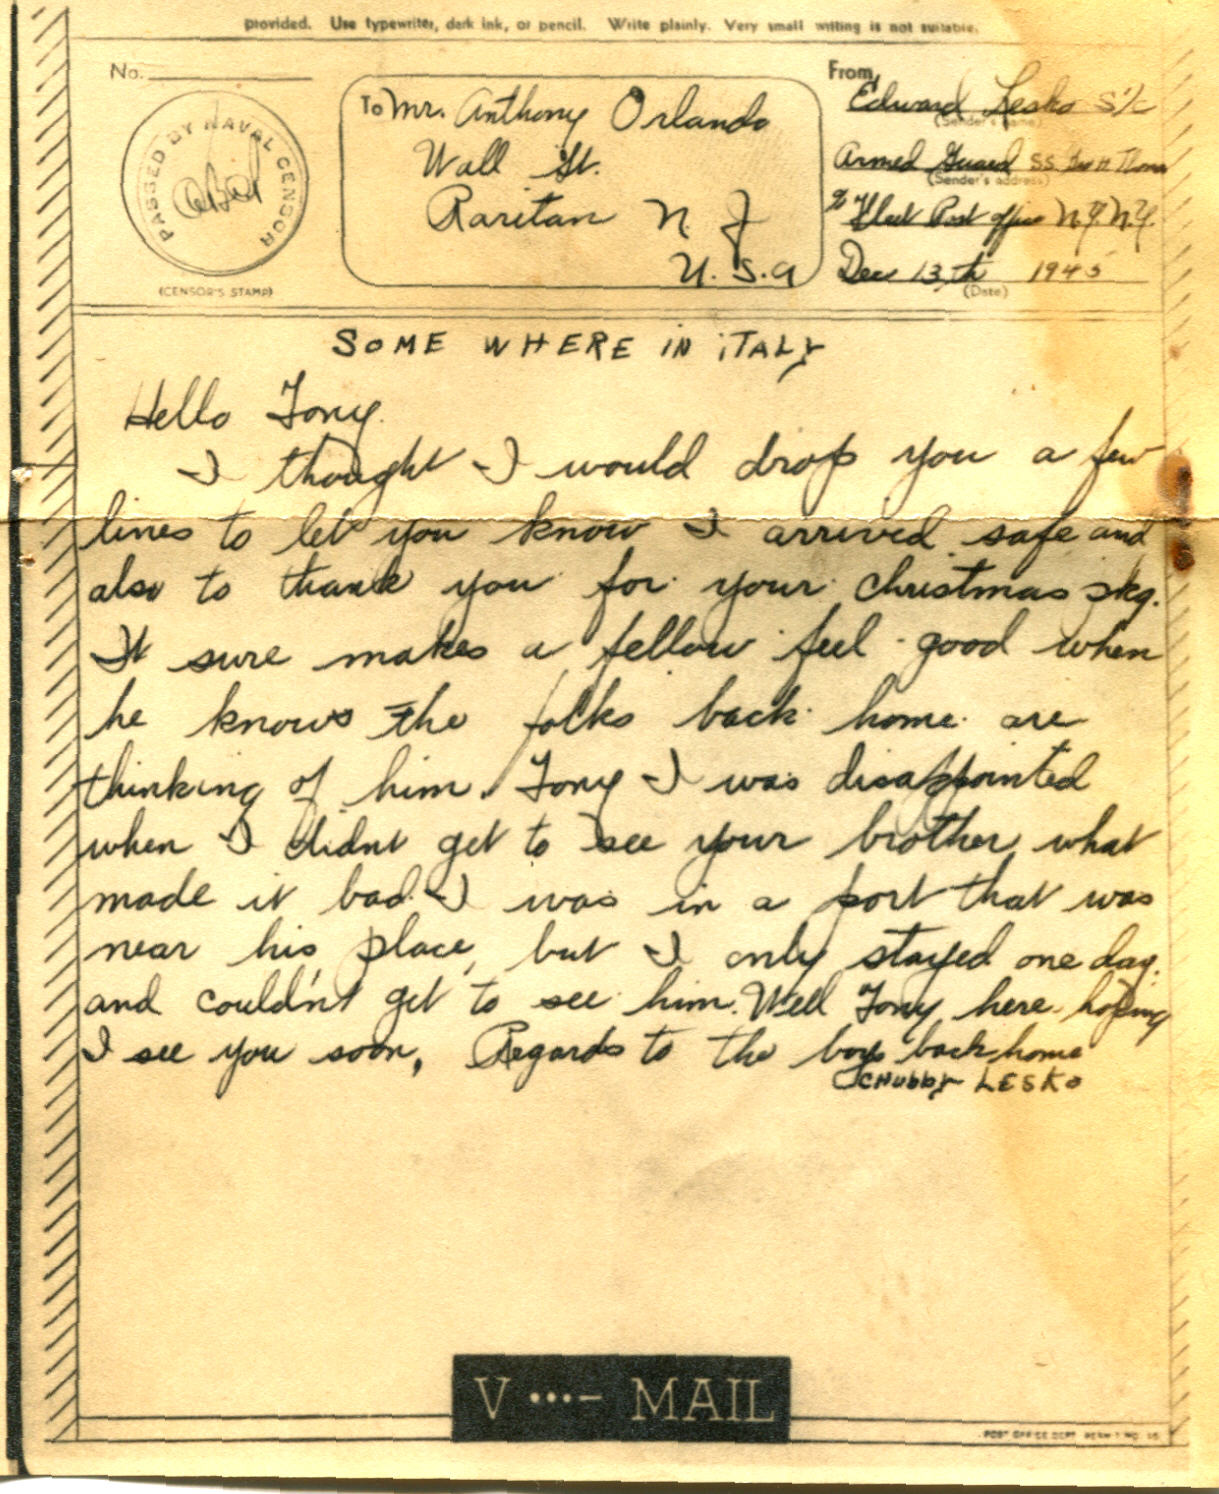 provided. Use typewriter, dark ink, or pencil. Write plainly. Very small writing is not suitable.
No.
PASSED BY NAVAL CENSOR
(CENSOR'S STAMP)
To Mr. Anthony Orlando
Wall St.
Raritan N. J
U. S. A
From
Edward Lesko S1/c
(Sender's name)
Armed Guard SS
(Sender's address)
% Fleet Post office N.Y. N.Y.
Dec 13th 1945
(Date)
SOME WHERE IN iTALY
Hello Tony.
I thought I would drop you a few
lines to let you know I arrived safe and
also to thank you for your Christmas pkg.
It sure makes a fellow feel good when
he knows the folks back home are
thinking of him. Tony I was disappointed
when I didnt get to see your brother, what
made it bad I was in a port that was
near his place, but I only stayed one day.
and couldn't get to see him. Well Tony, here hoping
I see you soon, Regards to the boys back home
CHUBBY LESKO
V ...- MAIL
POST OFFICE DEPT. PERMIT NO.